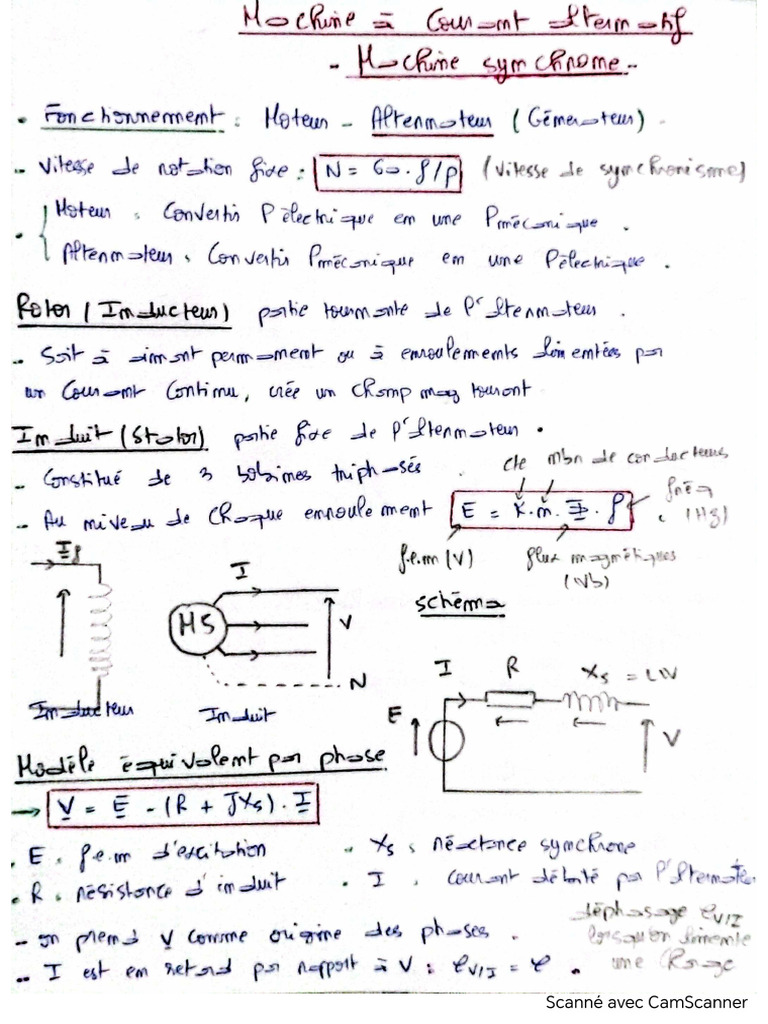 Machine à Courant Alternatif
- Machine synchrone -
• Fonctionnement : Moteur - Alternateur (Générateur).
- Vitesse de rotation fixe : N = 60 . f/p (Vitesse de synchronisme)
• { Moteur : Convertis P électrique en une P mécanique .
Alternateur : Convertis P mécanique en une P électrique .
Rotor (Inducteur) partie tournante de l'alternateur .
- Soit à aimant permanent ou à enroulements alimentées par
un Courant Continu, crée un champ mag tournant
Induit (Stator) partie fixe de l'alternateur .
- Constitué de 3 bobines triphasés
cte nbr de conducteurs
- Au niveau de chaque enroulement E = K . n . Φ . f fréq (Hz)
f.e.m (V) flux magnétiques (Wb)
If
I
MS
V
N
Inducteur
Induit
schéma
I R Xs = LW
E
V
Modèle équivalent par phase
→ V = E - (R + JXs) . I
. E : f.e.m d'excitation
. Xs : réactance synchrone
. R : résistance d'induit
. I : courant débité par l'alternateur
- on prend V comme origine des phases .
- I est en retard par rapport à V : φV/I = φ .
déphasage φV/I
lorsqu'on alimente
une charge
Scanné avec CamScanner